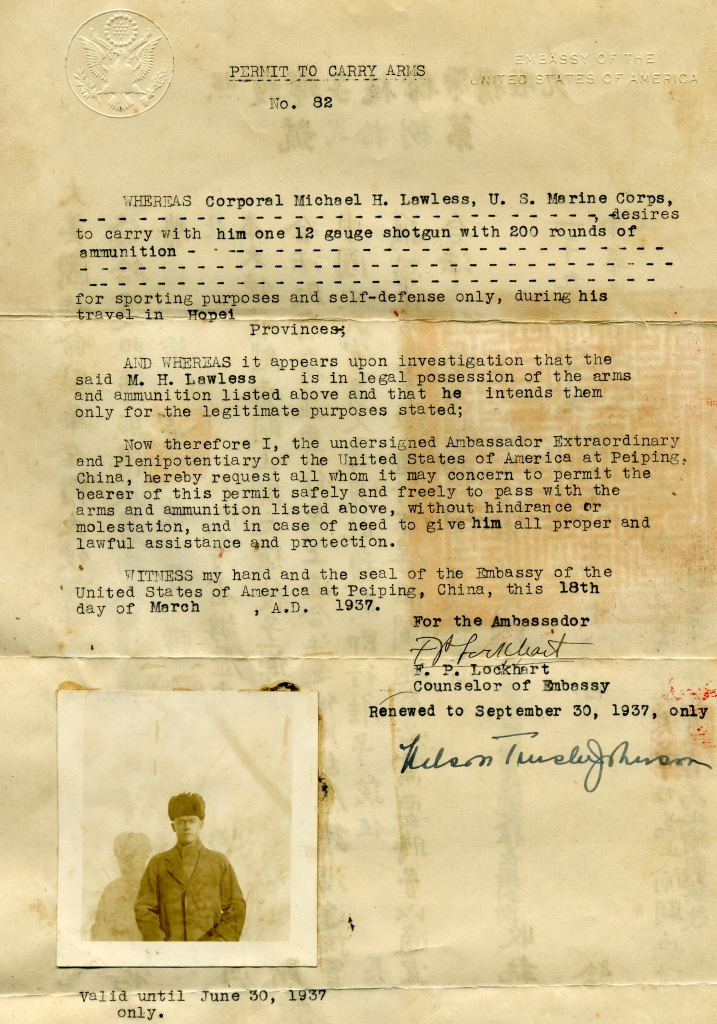 EMBASSY OF THE
UNITED STATES OF AMERICA
PERMIT TO CARRY ARMS
No. 82
WHEREAS Corporal Michael H. Lawless, U. S. Marine Corps,
- - - - - - - - - - - - - - - - - - - - - - - - - - - -, desires
to carry with him one 12 gauge shotgun with 200 rounds of
ammunition - - - - - - - - - - - - - - - - - - - - - - - -
for sporting purposes and self-defense only, during his
travel in Hopei
Provinces;
AND WHEREAS it appears upon investigation that the
said M. H. Lawless is in legal possession of the arms
and ammunition listed above and that he intends them
only for the legitimate purposes stated;
Now therefore I, the undersigned Ambassador Extraordinary
and Plenipotentiary of the United States of America at Peiping,
China, hereby request all whom it may concern to permit the
bearer of this permit safely and freely to pass with the
arms and ammunition listed above, without hindrance or
molestation, and in case of need to give him all proper and
lawful assistance and protection.
WITNESS my hand and the seal of the Embassy of the
United States of America at Peiping, China, this 18th
day of March , A.D. 1937.
For the Ambassador
F. P. Lockhart
F. P. Lockhart
Counselor of Embassy
Renewed to September 30, 1937, only
Nelson Trusler Johnson
Valid until June 30, 1937
only.